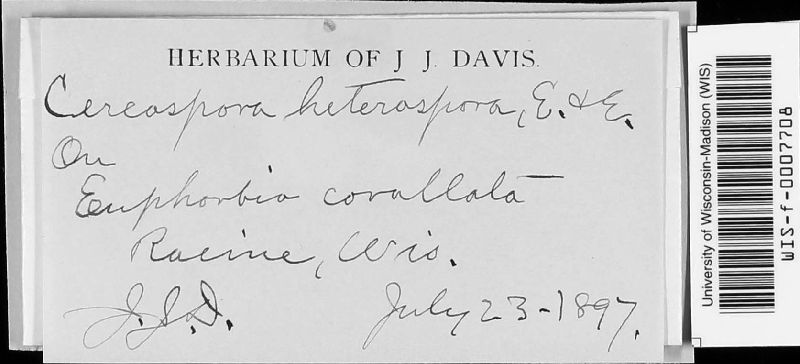 HERBARIUM OF J J. DAVIS.
Cercospora heterospora, E. & E.
On
Euphorbia corollata
Racine, Wis.
J.J.D. July 23-1897.
University of Wisconsin-Madison (WIS)
WIS-f-0007708